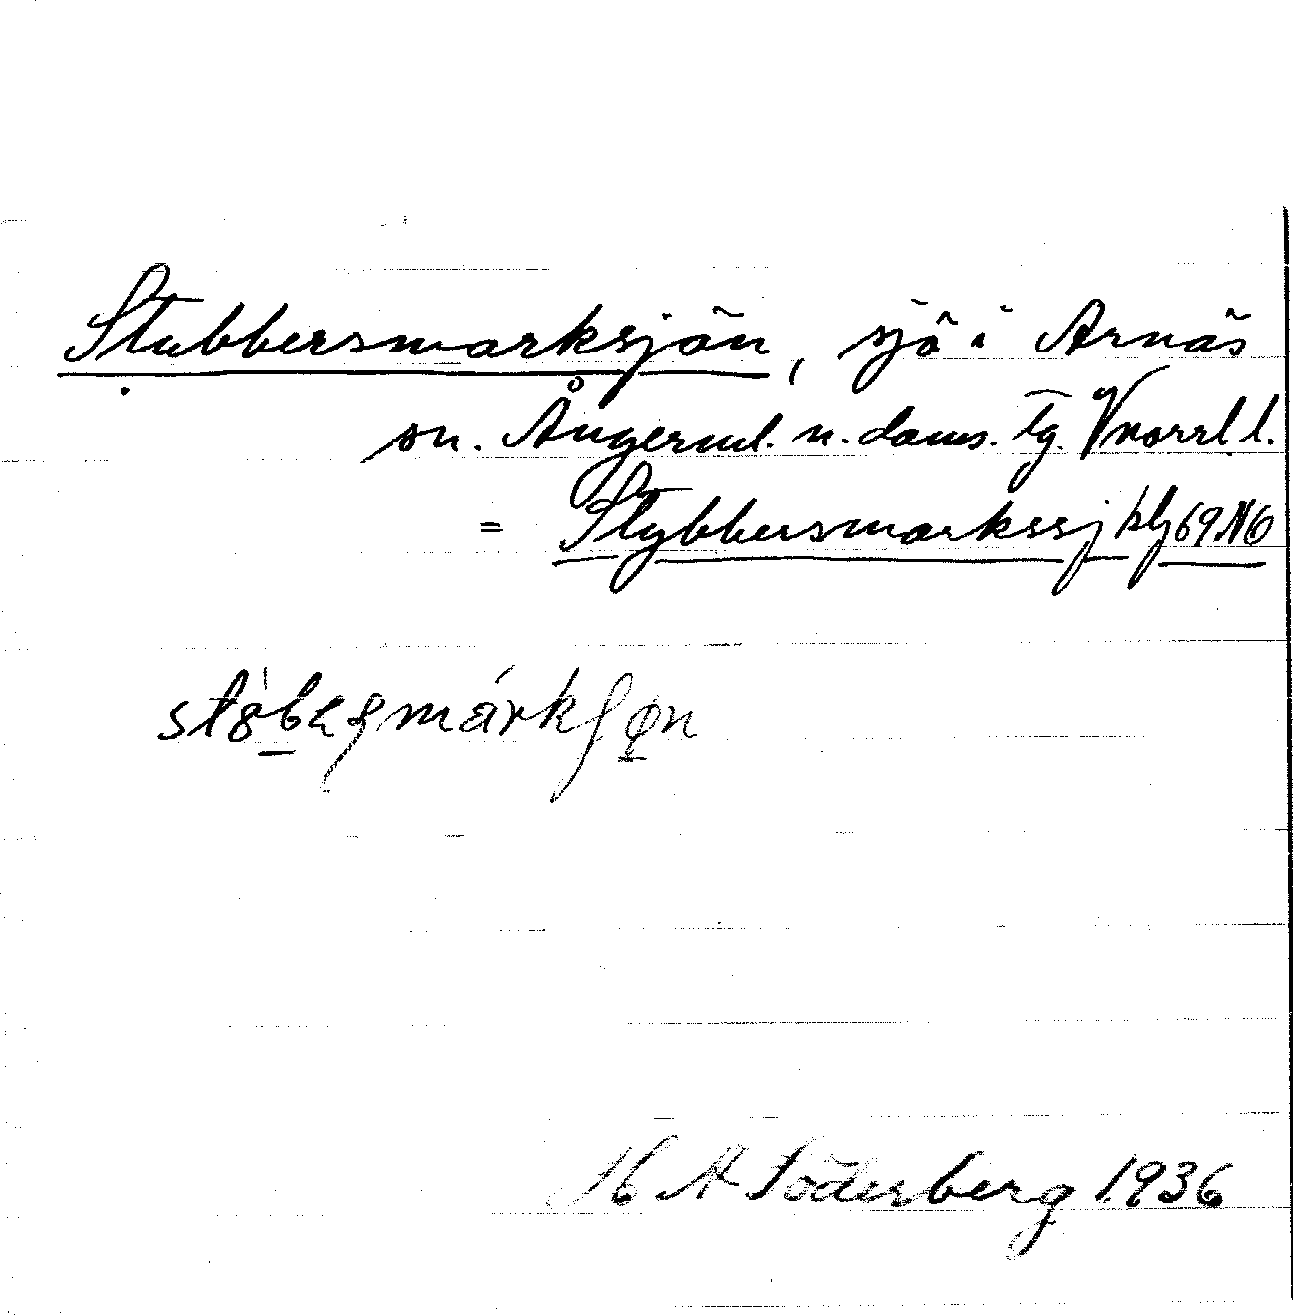 Stubbersmarksjön, sjö i Arnäs
sn. Ångerml. n. doms. tg. Vnorrl l.
= Stybbersmarkssj kbl 69 NO
M A Söderberg 1936